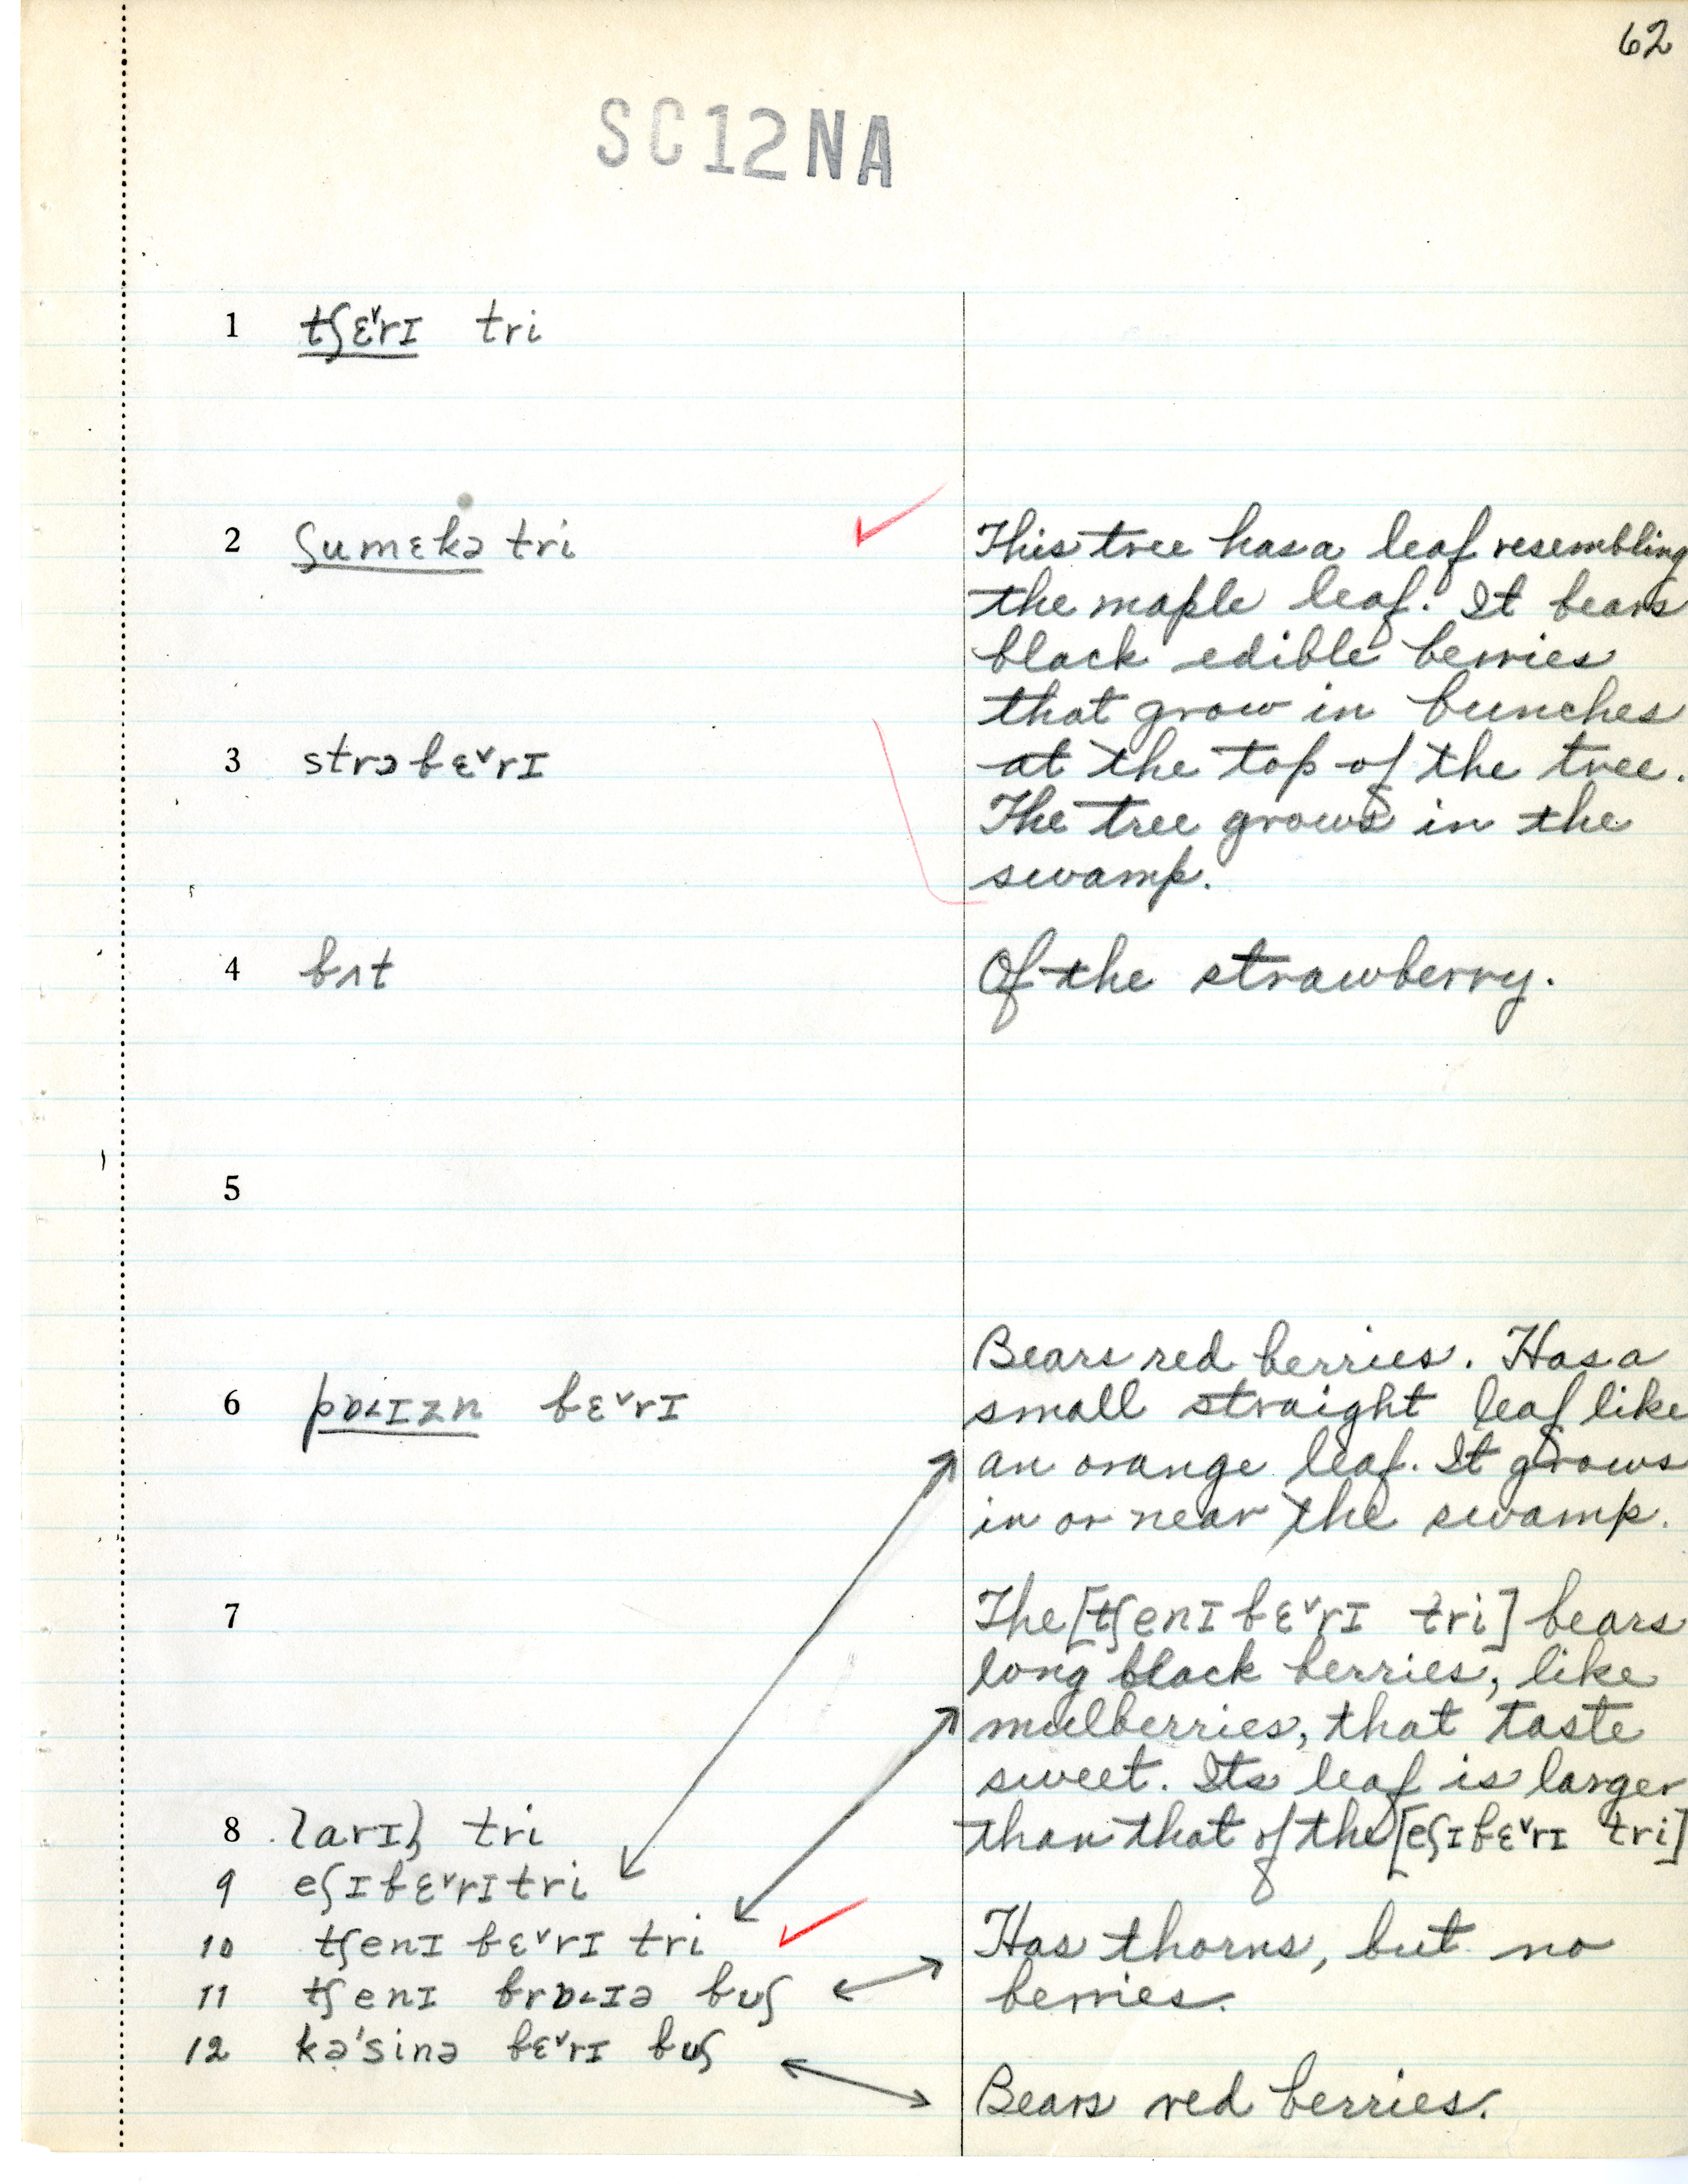 62
SC12NA
1 tʃɛ˅rɪ tri
2 ʃumɛkə tri
This tree has a leaf resembling
the maple leaf. It bears
black edible berries
that grow in bunches
3 strɔbɛ˅rɪ
at the top of the tree.
The tree grows in the
swamp.
4 bʌt
Of the strawberry.
5
Bears red berries. Has a
6 pɒ˂ɪzn bɛ˅rɪ
small straight leaf like
an orange leaf. It grows
in or near the swamp.
7
The [tʃenɪ bɛ˅rɪ tri] bears
long black berries, like
mulberries, that taste
sweet. Its leaf is larger
8 tri
than that of the [eʃɪbɛ˅rɪ tri]
9 eʃɪbɛ˅rɪ tri
10 tʃenɪ bɛ˅rɪ tri
Has thorns, but no
11 tʃenɪ brɒ˂ɪə buʃ
berries.
12 kə'sinə bɛ˅rɪ buʃ
Bears red berries.